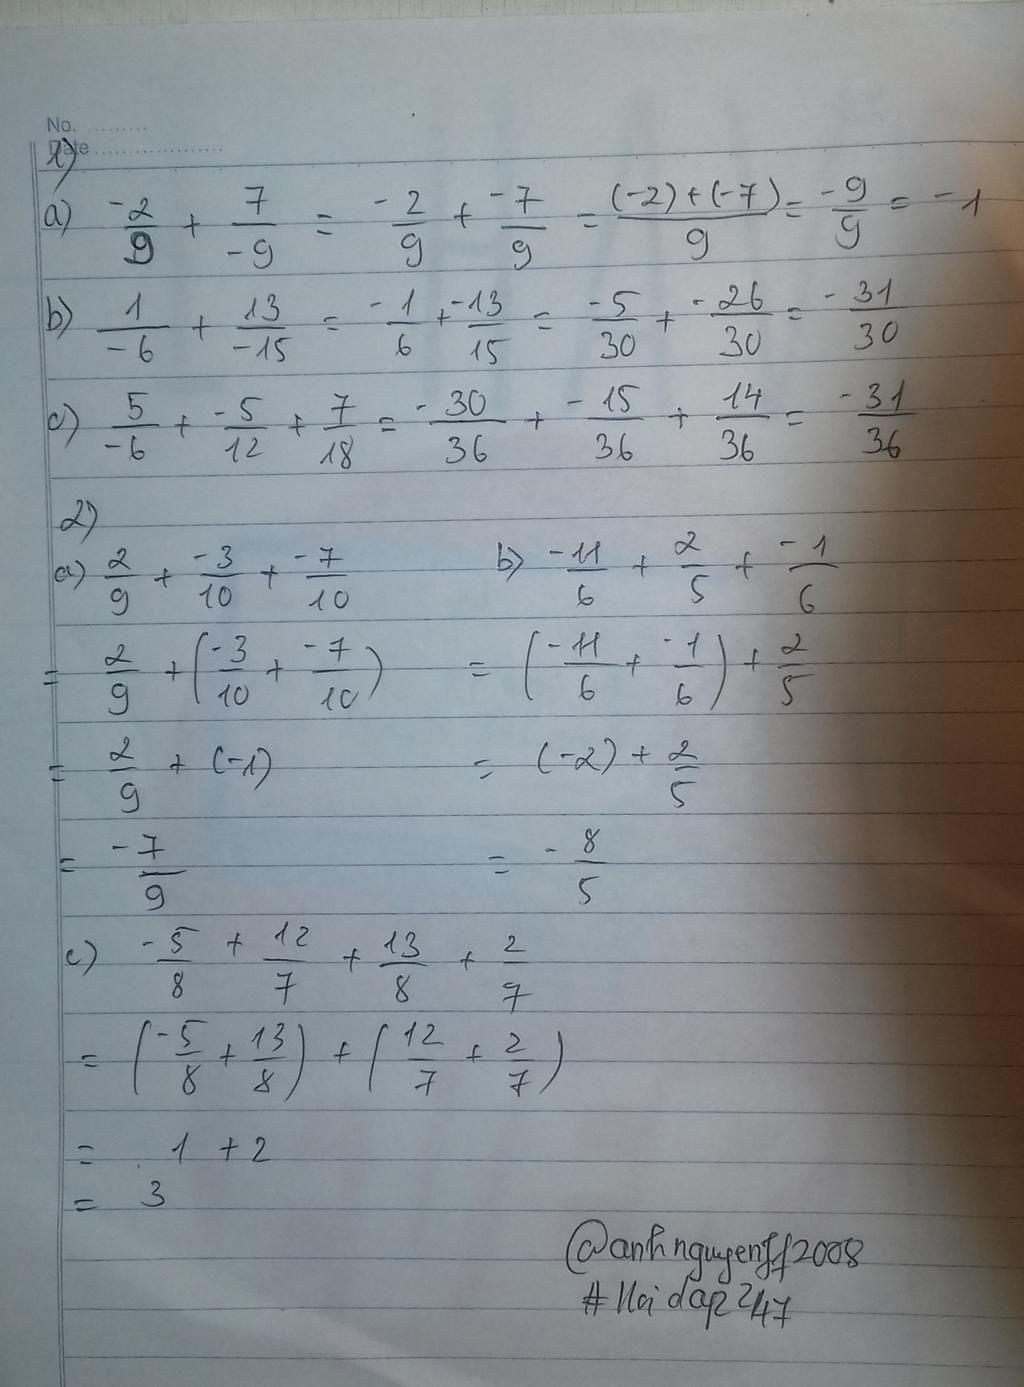 No. .........
Date ...................
1)
a) -2/9 + 7/-9 = -2/9 + -7/9 = (-2)+(-7)/9 = -9/9 = -1
b) 1/-6 + 13/-15 = -1/6 + -13/15 = -5/30 + -26/30 = -31/30
c) 5/-6 + -5/12 + 7/18 = -30/36 + -15/36 + 14/36 = -31/36
2)
a) 2/9 + -3/10 + -7/10
= 2/9 + (-3/10 + -7/10)
= 2/9 + (-1)
= -7/9
b) -11/6 + 2/5 + -1/6
= (-11/6 + -1/6) + 2/5
= (-2) + 2/5
= -8/5
c) -5/8 + 12/7 + 13/8 + 2/7
= (-5/8 + 13/8) + (12/7 + 2/7)
= 1 + 2
= 3
@anhnguyenff2008
#Hoidap247